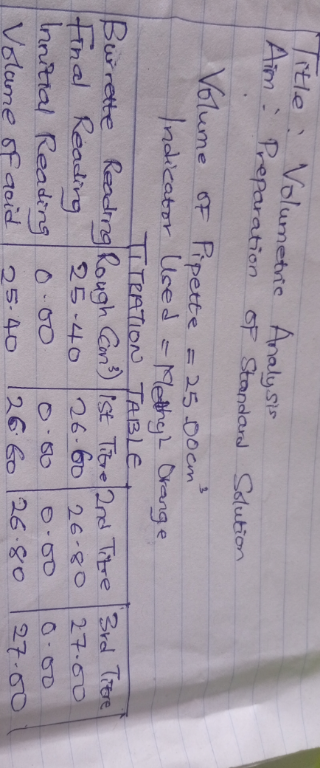 Title: Volumetric Analysis
Aim: Preparation of Standard Solution
Volume of Pipette = 25.00cm³
Indicator Used = Methyl Orange
TITRATION TABLE
Burette Reading Rough (cm³) 1st Titre 2nd Titre 3rd Titre
Final Reading 25.40 26.60 26.80 27.00
Innitial Reading 0.00 0.00 0.00 0.00
Volume of acid 25.40 26.60 26.80 27.00